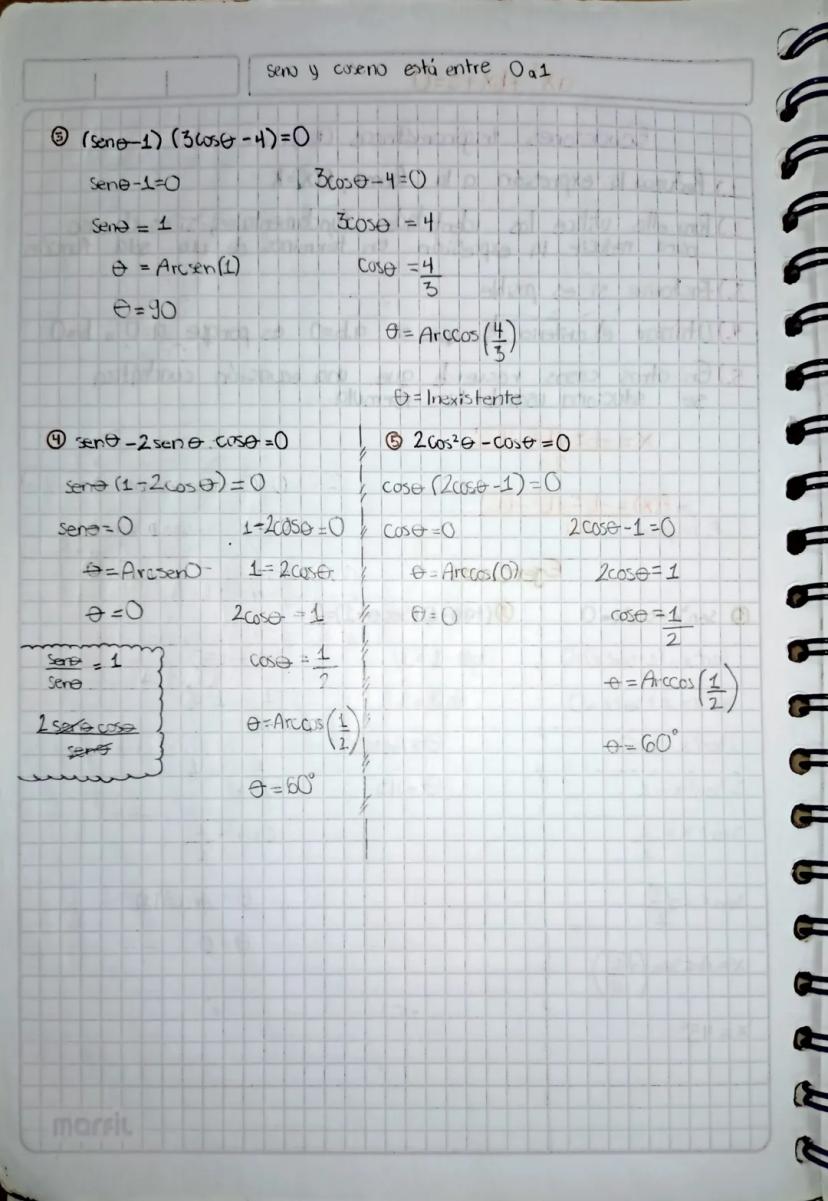 seno y coseno está entre 0 a 1
③ (senθ-1) (3cosθ-4)=0
senθ-1=0
senθ = 1
θ = Arcsen(1)
θ=90
3cosθ-4=0
3cosθ = 4
cosθ = 4/3
θ = Arccos(4/3)
θ = Inexistente
④ senθ-2senθ cosθ=0
senθ (1-2cosθ)=0
senθ=0
θ=Arcsen0
θ=0
senθ/senθ = 1
2senθcosθ/senθ
1-2cosθ=0
1=2cosθ
2cosθ=1
cosθ = 1/2
θ=Arccos(1/2)
θ=60°
⑤ 2cos²θ-cosθ=0
cosθ (2cosθ-1)=0
cosθ=0
θ=Arccos(0)
θ=0
2cosθ-1=0
2cosθ=1
cosθ=1/2
θ=Arccos(1/2)
θ=60°
marfil